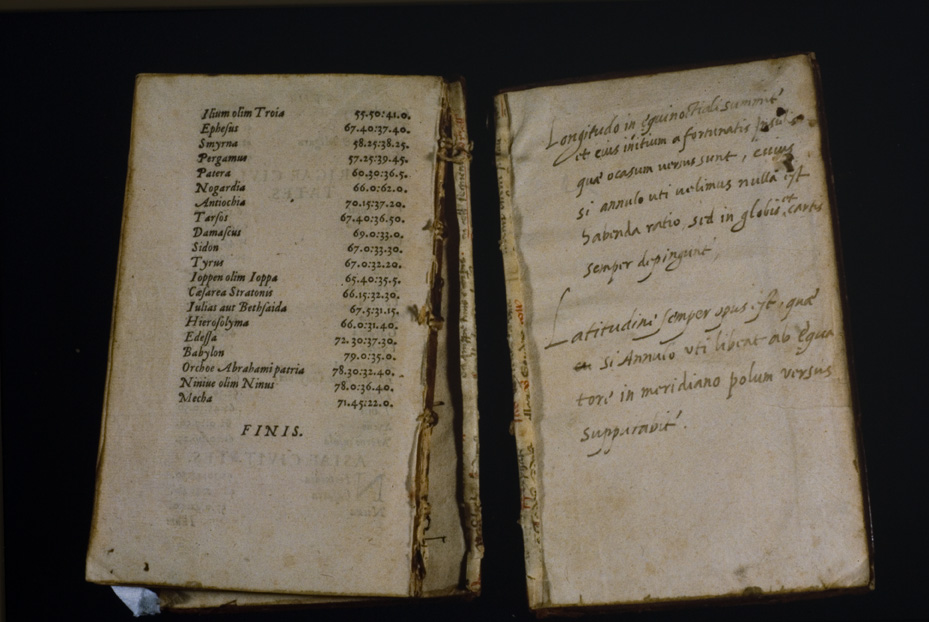 Ilium olim Troia 55.50:41.0.
Ephesus 67.40:37.40.
Smyrna 58.25:38.25.
Pergamus 57.25:39.45.
Patera 60.30:36.5.
Nogardia 66.0:62.0.
Antiochia 70.15:37.20.
Tarsos 67.40:36.50.
Damascus 69.0:33.0.
Sidon 67.0:33.30.
Tyrus 67.0:32.20.
Ioppen olim Ioppa 65.40:35.5.
Cæsarea Stratonis 66.15:32.30.
Iulias aut Bethsaida 67.5:31.15.
Hierosolyma 66.0:31.40.
Edessa 72.30:37.30.
Babylon 79.0:35.0.
Orchoe Abrahami patria 78.30:32.40.
Niniue olim Ninus 78.0:36.40.
Mecha 71.45:22.0.
FINIS.
Longitudo in
et eius initium a fortunatis
quæ ocasum versus sunt, cuius
si annulo uti uelimus nulla est
habenda ratio, sed in globis et cartis
semper depingunt,
Latitudini semper opus est, quæ
si Annulo uti libeat ab equa
tore in meridiano polum versus